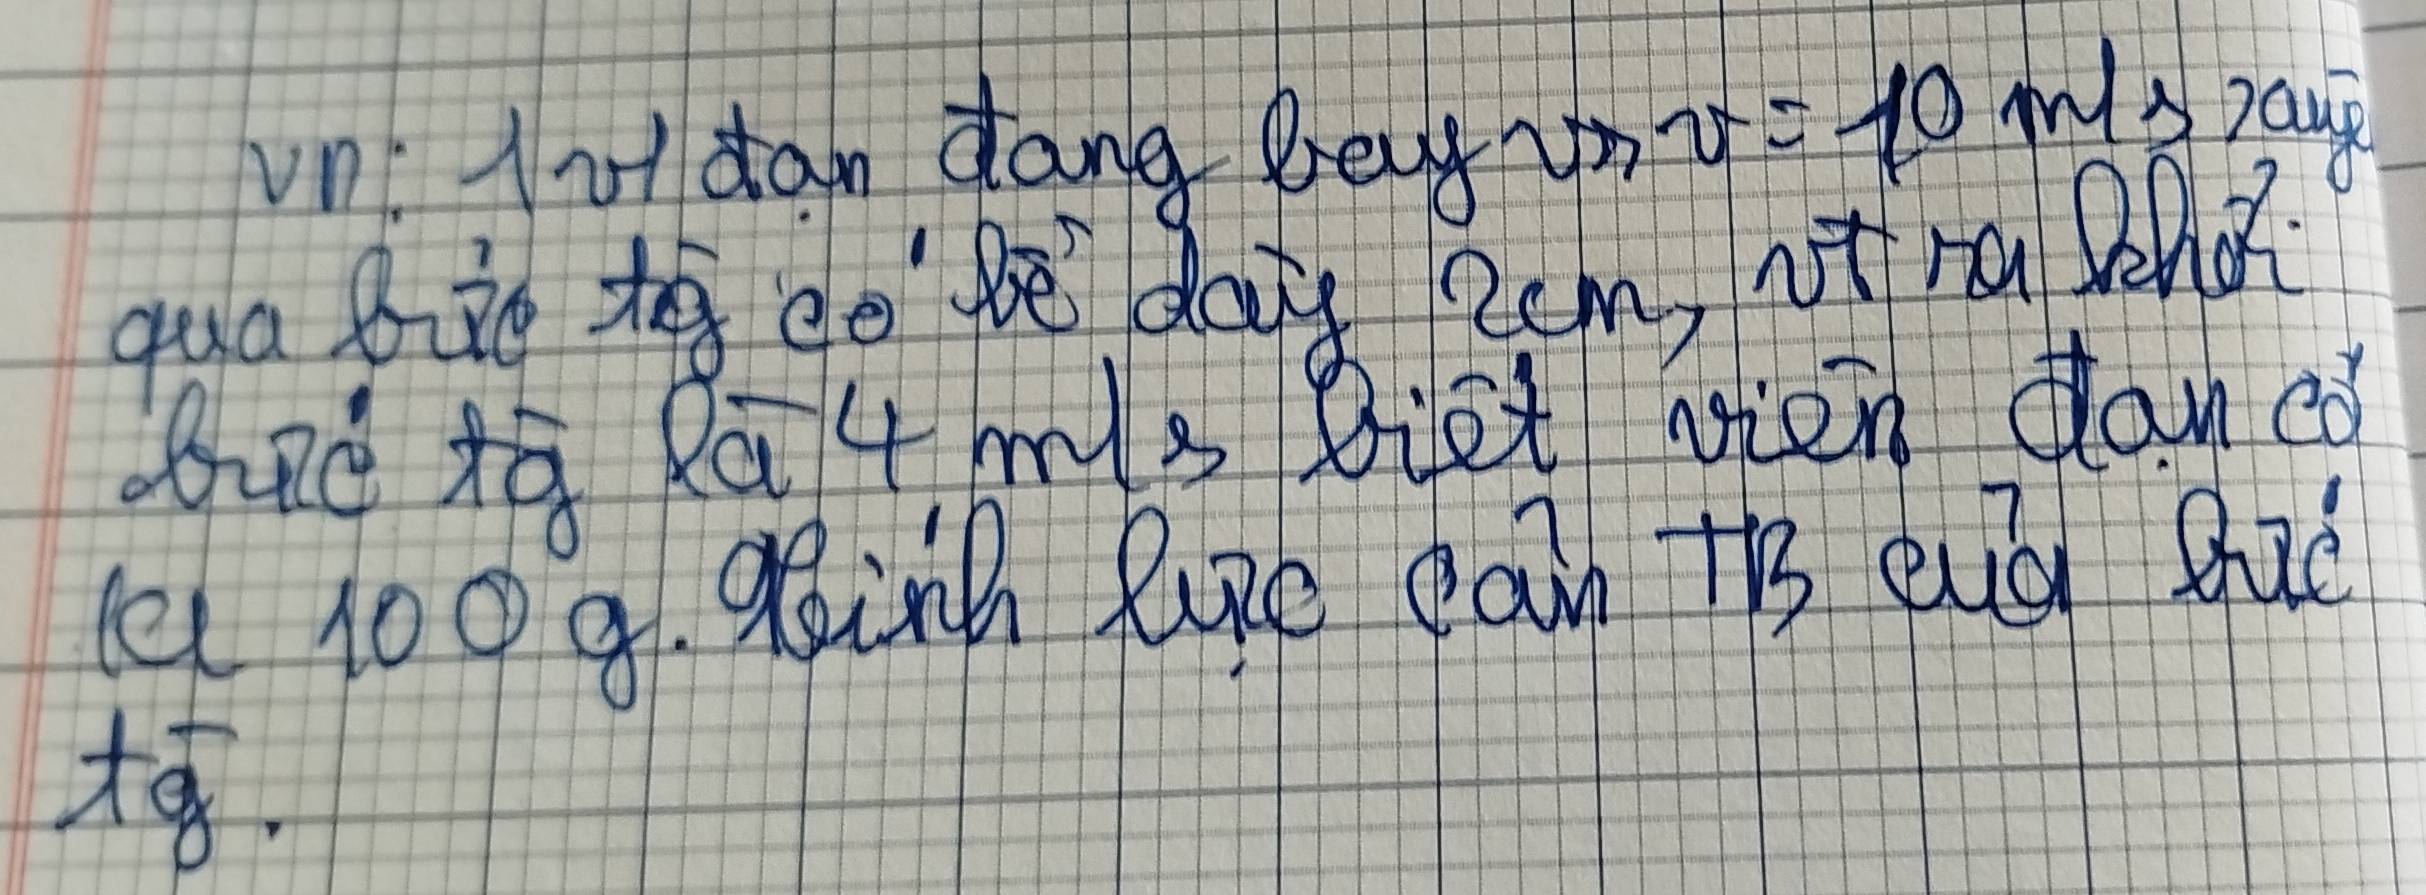 VD: 1 vđ đạn đang bay với v = 10 m/s xuyên
qua bức tg có bề dày 2cm, vt ra khỏi
bức tg là 4 m/s biết viên đạn có
kl 100g. Tính lực cản TB của bức
tg.